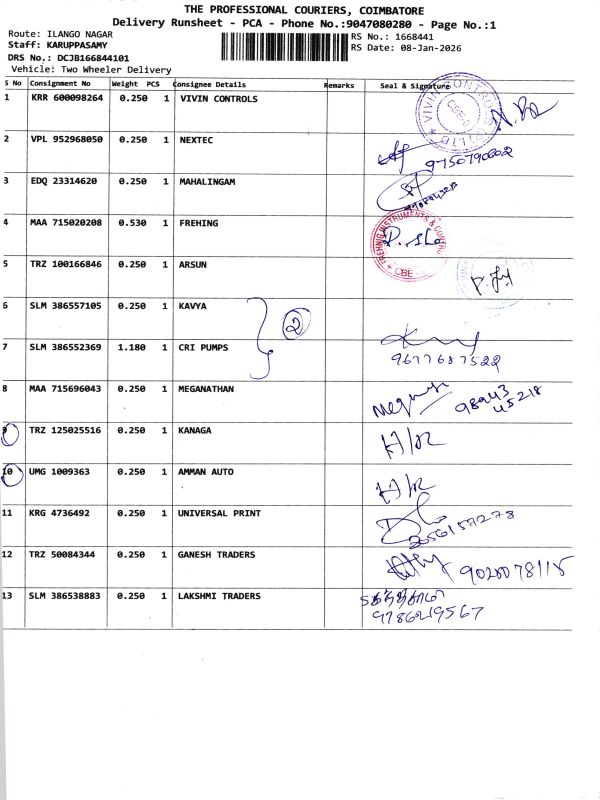 THE PROFESSIONAL COURIERS, COIMBATORE
Delivery Runsheet - PCA - Phone No.:9047080280 - Page No.:1
Route: ILANGO NAGAR
Staff: KARUPPASAMY
DRS No.: DCJB166844101
Vehicle: Two Wheeler Delivery
RS No.: 1668441
RS Date: 08-Jan-2026
S No Consignment No Weight PCS Consignee Details Remarks Seal & Signature
1 KRR 600098264 0.250 1 VIVIN CONTROLS
2 VPL 952968050 0.250 1 NEXTEC 9750790602
3 EDQ 23314620 0.250 1 MAHALINGAM
4 MAA 715020208 0.530 1 FREHING
5 TRZ 100166846 0.250 1 ARSUN
6 SLM 386557105 0.250 1 KAVYA
2
7 SLM 386552369 1.180 1 CRI PUMPS 9677687522
8 MAA 715696043 0.250 1 MEGANATHAN 98943 45218
9 TRZ 125025516 0.250 1 KANAGA H/R
10 UMG 1009363 0.250 1 AMMAN AUTO H/R
11 KRG 4736492 0.250 1 UNIVERSAL PRINT
12 TRZ 50084344 0.250 1 GANESH TRADERS
13 SLM 386538883 0.250 1 LAKSHMI TRADERS
9786219567